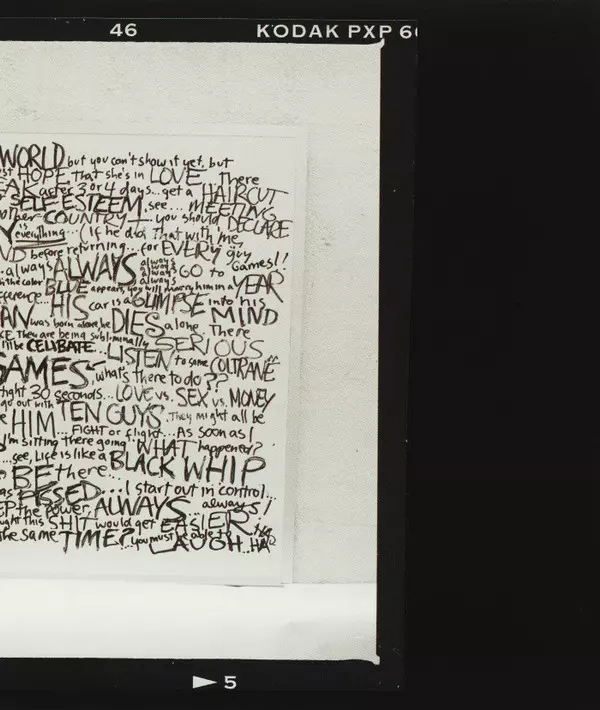 46 KODAK PXP 6
WORLD but you can't show it yet, but
HOPE that she's in LOVE. There
after 3 or 4 days... get a HAIRCUT
SELF ESTEEM, see... MEETING
other COUNTRY - you should DECLARE
is everything... (If he did that with me,
before returning... for EVERY guy
always ALWAYS always always always GO to Games!!
the color BLUE appears, you will marry him in a YEAR
HIS car is a GLIMPSE into his
was born alone, he DIES alone. There MIND
They are being subliminally SERIOUS
CELIBATE... LISTEN to some COLTRANE
GAMES, what's there to do??
30 seconds... LOVE vs. SEX vs. MONEY
go out with TEN GUYS. They might all be
HIM... FIGHT or flight... As soon as I
I'm sitting there going "WHAT happened?"
...see, Life is like a BLACK WHIP
BE there...
PISSED... I start out in control...
the power, ALWAYS always!
this SHIT would get EASIER
the same TIME? ...you must be able to LAUGH. HA
5